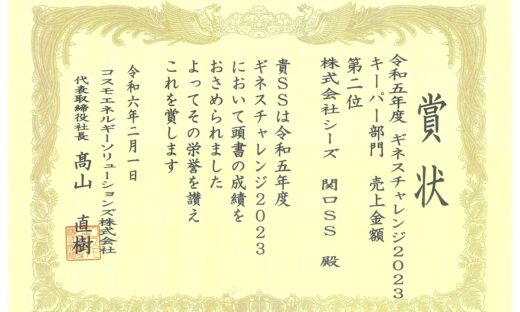 賞状
令和五年度 ギネスチャレンジ2023
キーパー部門 売上金額
第二位
株式会社シーズ 関口SS 殿
貴SSは令和五年度
ギネスチャレンジ2023
において頭書の成績を
おさめられました
よってその栄誉を讃え
これを賞します
令和六年二月一日
コスモエネルギーソリューションズ株式会社
代表取締役社長 髙山 直樹